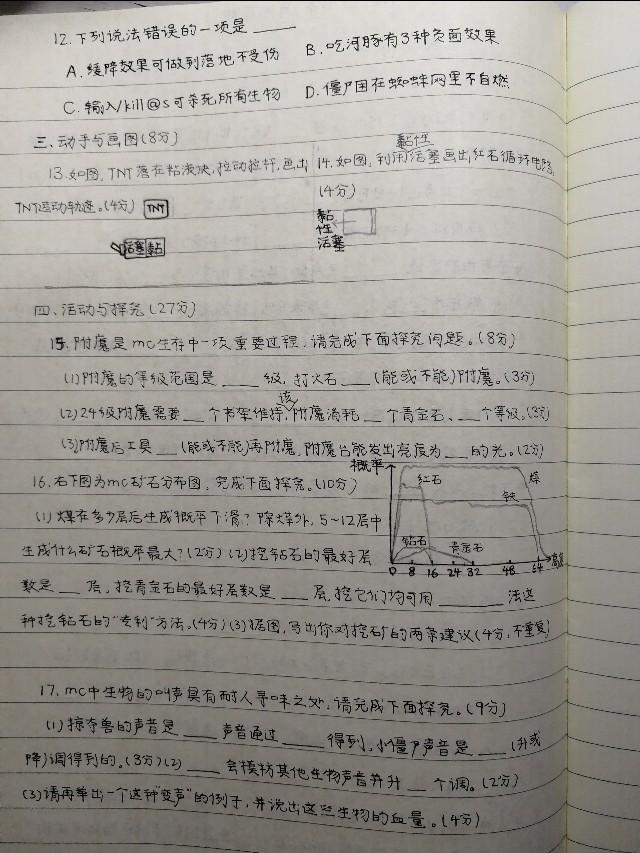 12.下列说法错误的一项是____
A.缓降效果可做到落地不受伤 B.吃河豚有3种负面效果
C.输入/kill@s可杀死所有生物 D.僵尸困在蜘蛛网里不自燃
三、动手与画图(8分)
13.如图,TNT落在粘液块,拉动拉杆,画出
TNT运动轨迹。(4分) TNT
活塞 黏
黏性
14.如图,利用活塞画出红石循环电路
(4分)
黏性活塞
四、活动与探究(27分)
15.附魔是mc生存中一项重要过程,请完成下面探究问题。(8分)
(1)附魔的等级范围是____级,打火石____(能或不能)附魔。(3分)
(2)24级附魔需要__个书架维持,该附魔消耗__个青金石、__个等级。(3分)
(3)附魔后工具__(能或不能)再附魔,附魔台能发出亮度为__的光。(2分)
16.右下图为mc矿石分布图,完成下面探究。(10分)
(1)煤在多少层后生成概率下滑?除煤外,5~12层中
生成什么矿石概率最大?(2分)(2)挖钻石的最好层
数是__层,挖青金石的最好层数是__层,挖它们均可用______法这
种挖钻石的“专利”方法。(4分)(3)据图,写出你对挖矿的两条建议(4分,不重复)
概率
红石
煤
铁
钻石
青金石
0 8 16 24 32 48 64 高度
17.mc中生物的叫声具有耐人寻味之处,请完成下面探究。(9分)
(1)掠夺兽的声音是____声音通过____得到,小僵尸声音是____(升或
降)调得到的。(3分)(2)____会模仿其他生物声音并升__个调。(2分)
(3)请再举出一个这种“变声”的例子,并说出这些生物的血量。(4分)